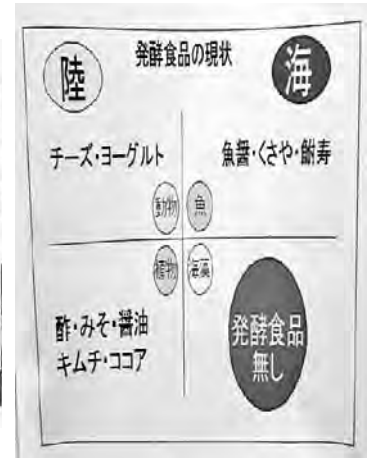 発酵食品の現状
陸
海
チーズ・ヨーグルト
魚醤・くさや・鮒寿
動物
魚
植物
海藻
酢・みそ・醤油
キムチ・ココア
発酵食品
無し